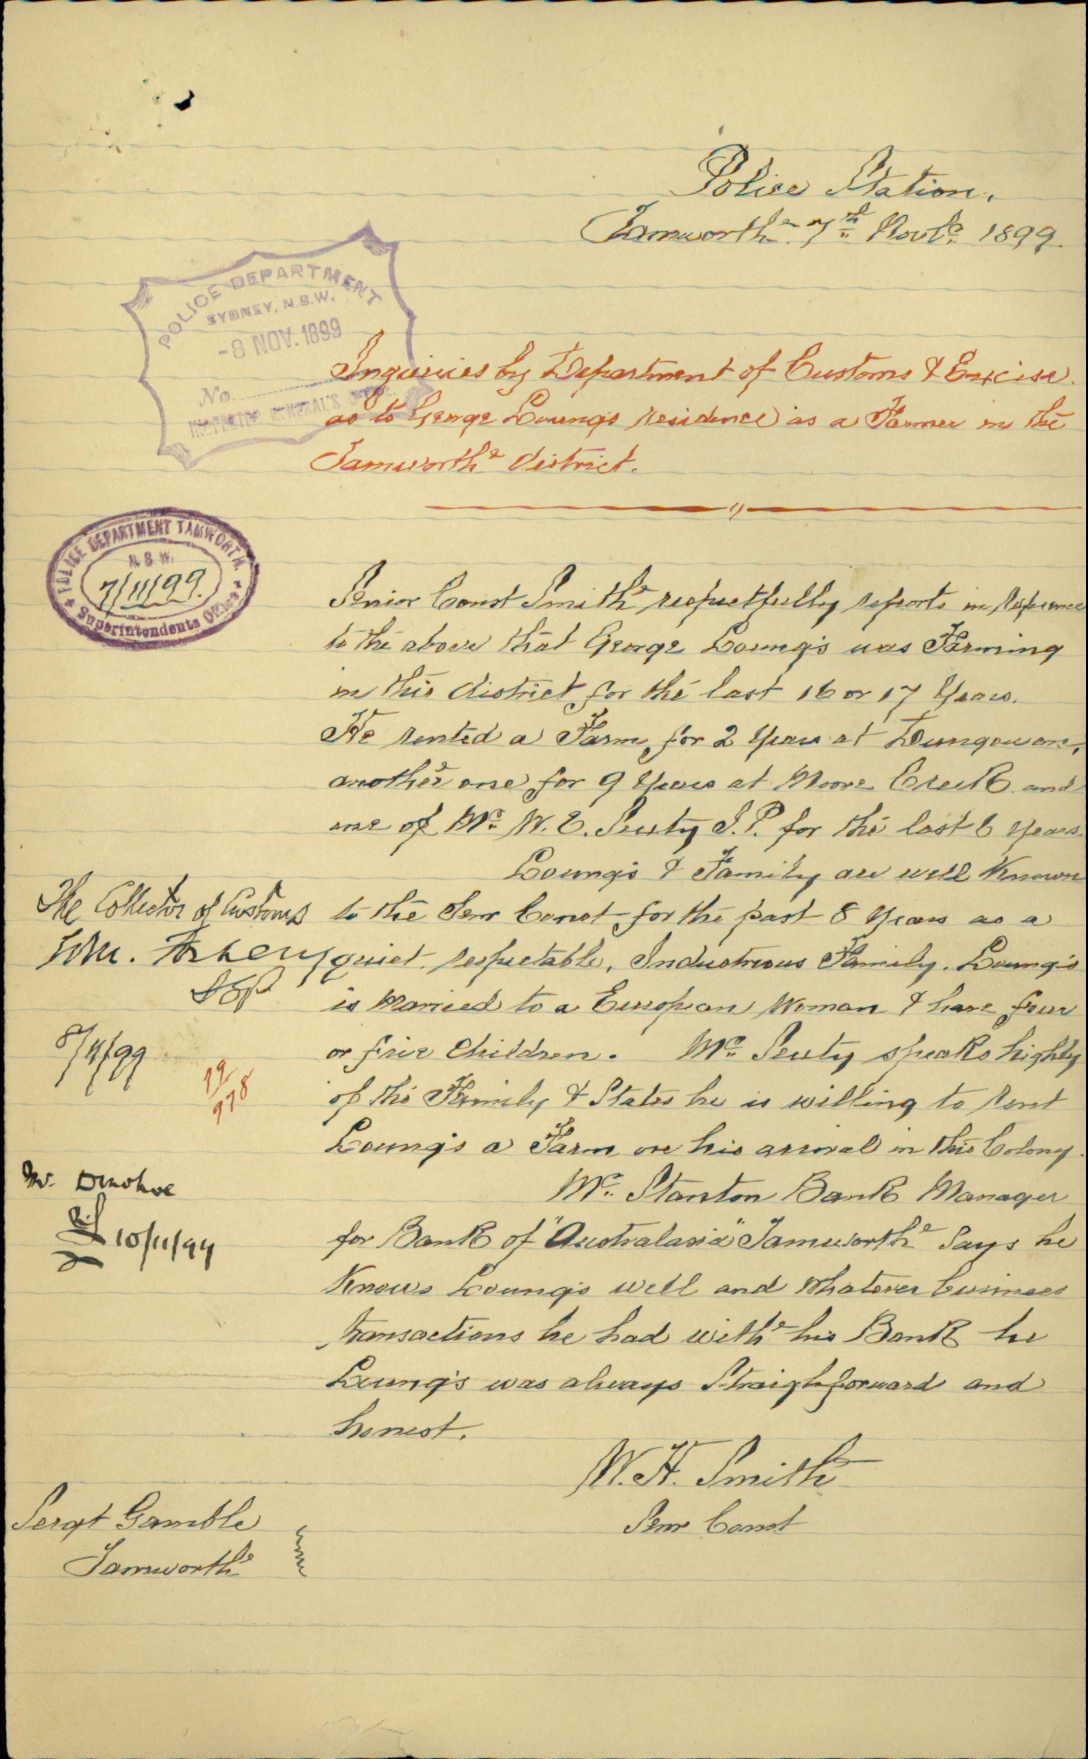 Police Station,
Tamworth 7th Novbr. 1899.
POLICE DEPARTMENT
SYDNEY, N.S.W.
-8 NOV. 1899
No.
INSPECTOR GENERAL'S
Inquiries by Department of Customs & Excise.
as to George Loung's residence as a Farmer in the
Tamworth district.
POLICE DEPARTMENT TAMWORTH
N.S.W.
7/11/99.
Superintendents Office
Senior Const Smith respectfully reports in reference
to the above that George Loung's was Farming
in this district for the last 16 or 17 Years.
He rented a Farm for 2 Years at Dungowan,
another one for 9 Years at Moore Creek and
one of Mr. W. E. J.P. for the last 6 Years.
Loung's & Family are well Known
to the Senr Const for the past 8 Years as a
quiet, respectable, Industrious Family. Loung's
is Married to a European Woman & have four
or five Children. Mr. speaks highly
of the Family & States he is willing to rent
Loung's a Farm on his arrival in this Colony.
Mr. Stanton Bank Manager
for Bank of "Australasia" Tamworth Says he
Knows Loung's well and whatever business
transactions he had with his Bank he
Loung's was always Straighforward and
honest.
W. H. Smith
Senr Const
The Collector of Customs
8/11/99
99/978
Mr. Donohoe
10/11/99
Sergt Gamble
Tamworth